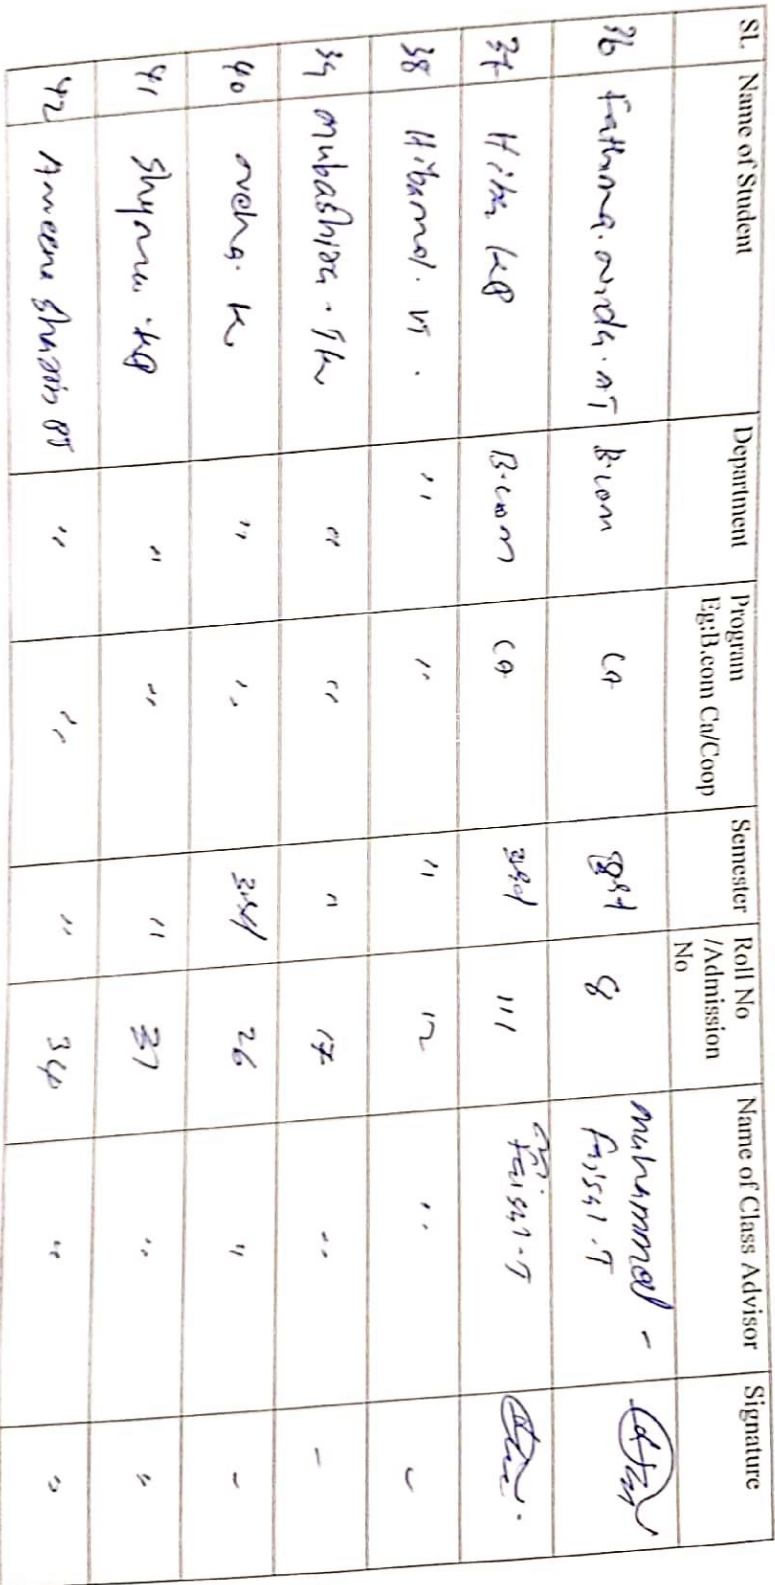 SL Name of Student Department Program Eg:B.com Ca/Coop Semester Roll No /Admission No Name of Class Advisor Signature
36 Fathima. nida. AT B.com CA 3rd 8 muhammad Faisal. T
37 Hiba KP B.com CA 3rd 111 Faisal. T
38 Hibamol. VT. " " " 12 "
39 mubashira. TK " " " 17 "
40 neha. K " " 3rd 26 "
41 Shymu. KP " " " "
42 Ameena Sherin PT " " " 34 " "